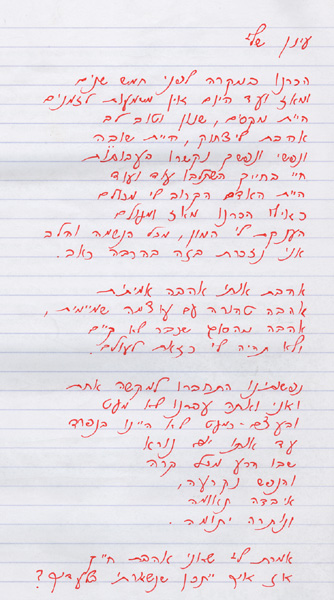 עינן שלי
הכרנו במקרה לפני חמש שנים
ומאז ועד היום אין משמעות לזמנים
היית מקסים, שנון וטוב לב
אהבת לצחוק, היית שובב
ונפשי ונפשך נקשרו בעבותות
חיי בחייך השתלבו עוד ועוד
היית האדם הקרוב לי מכולם
כאילו הכרנו מאז ומעולם
הענקת לי המון, מכל הנשמה והלב
אני נזכרת בזה בהרבה כאב.
אהבת אותי אהבה אמיתית
אהבה טהורה עם עוצמה שמיימית,
אהבה מהסוג שכבר לא קיים
ולא תהיה לי כזאת לעולם.
נפשותינו התחברו למקשה אחת
ואני ואתה עפרנו לא מעט
ובעצם-כמעט לא היינו בנפרד
עד אותו יום נורא
שבו חרע מכל קרה
והנפש נקרעה,
איבדה תאומה
ונותרה יתומה.
אמרת לי שאני אהבת חייך
אז איך ייתכן שנשארתי בלעדיך?